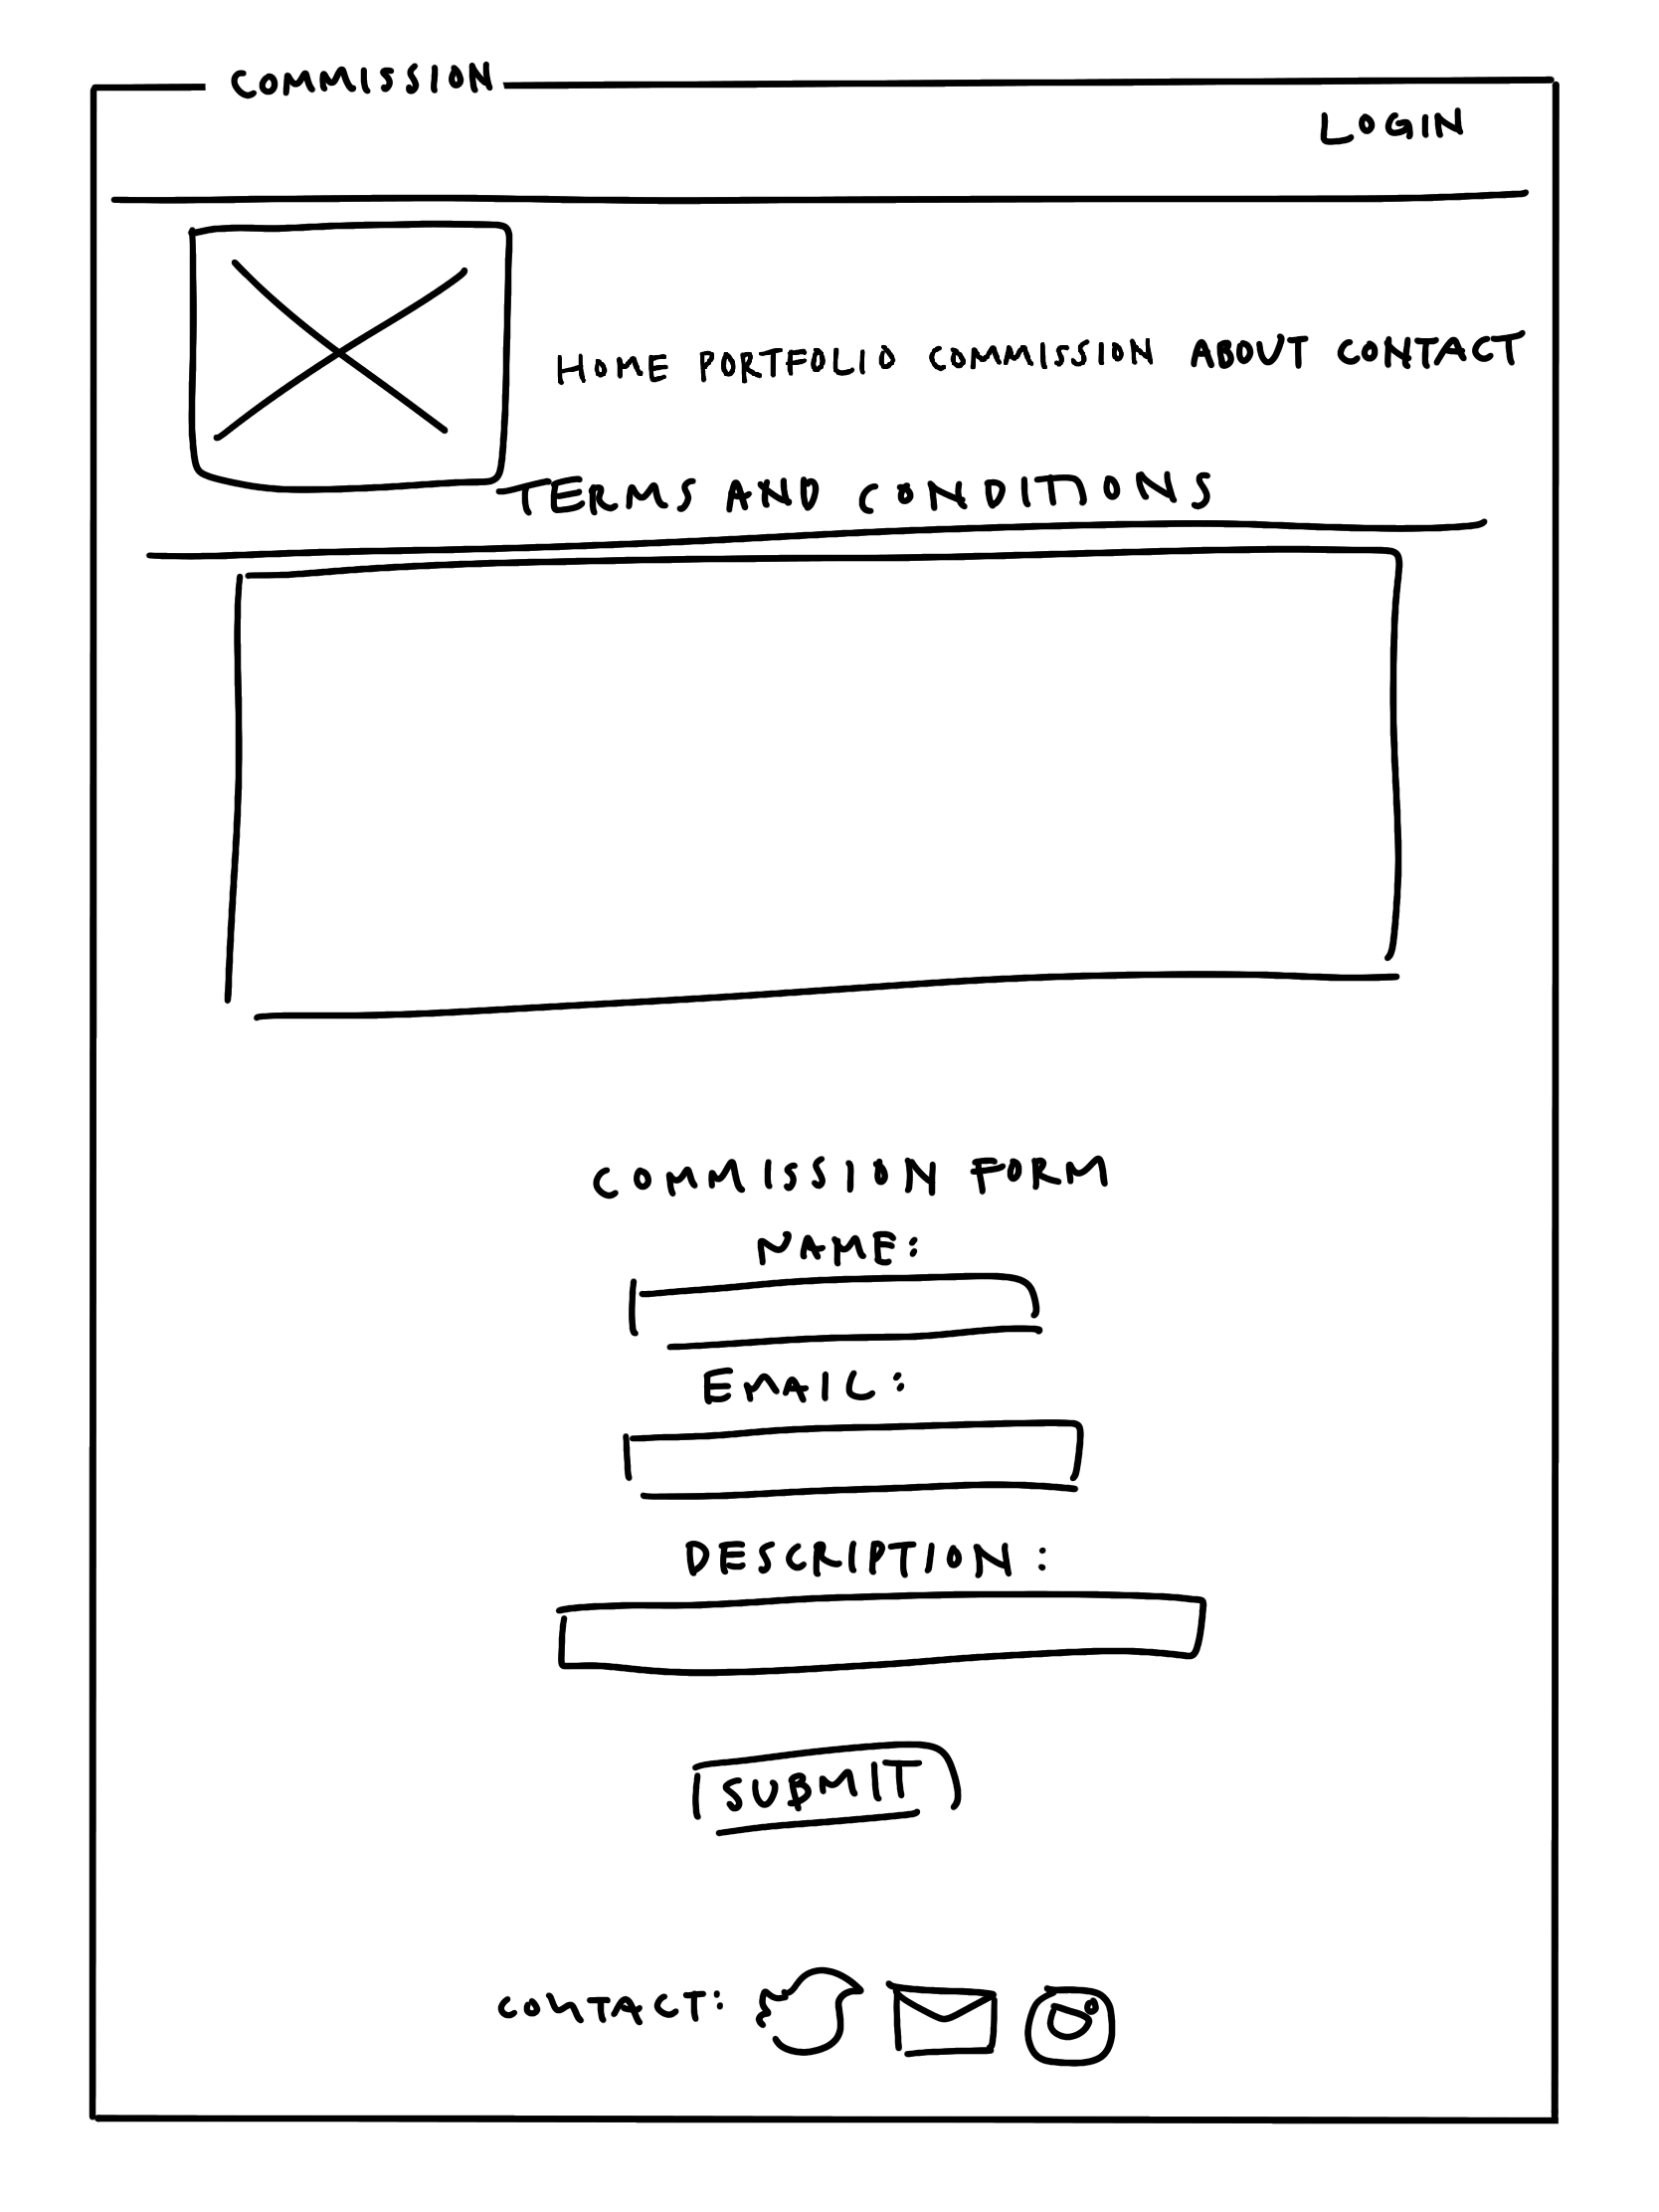 COMMISSION
LOGIN
HOME PORTFOLIO COMMISSION ABOUT CONTACT
TERMS AND CONDITIONS
COMMISSION FORM
NAME:
EMAIL:
DESCRIPTION:
SUBMIT
CONTACT: